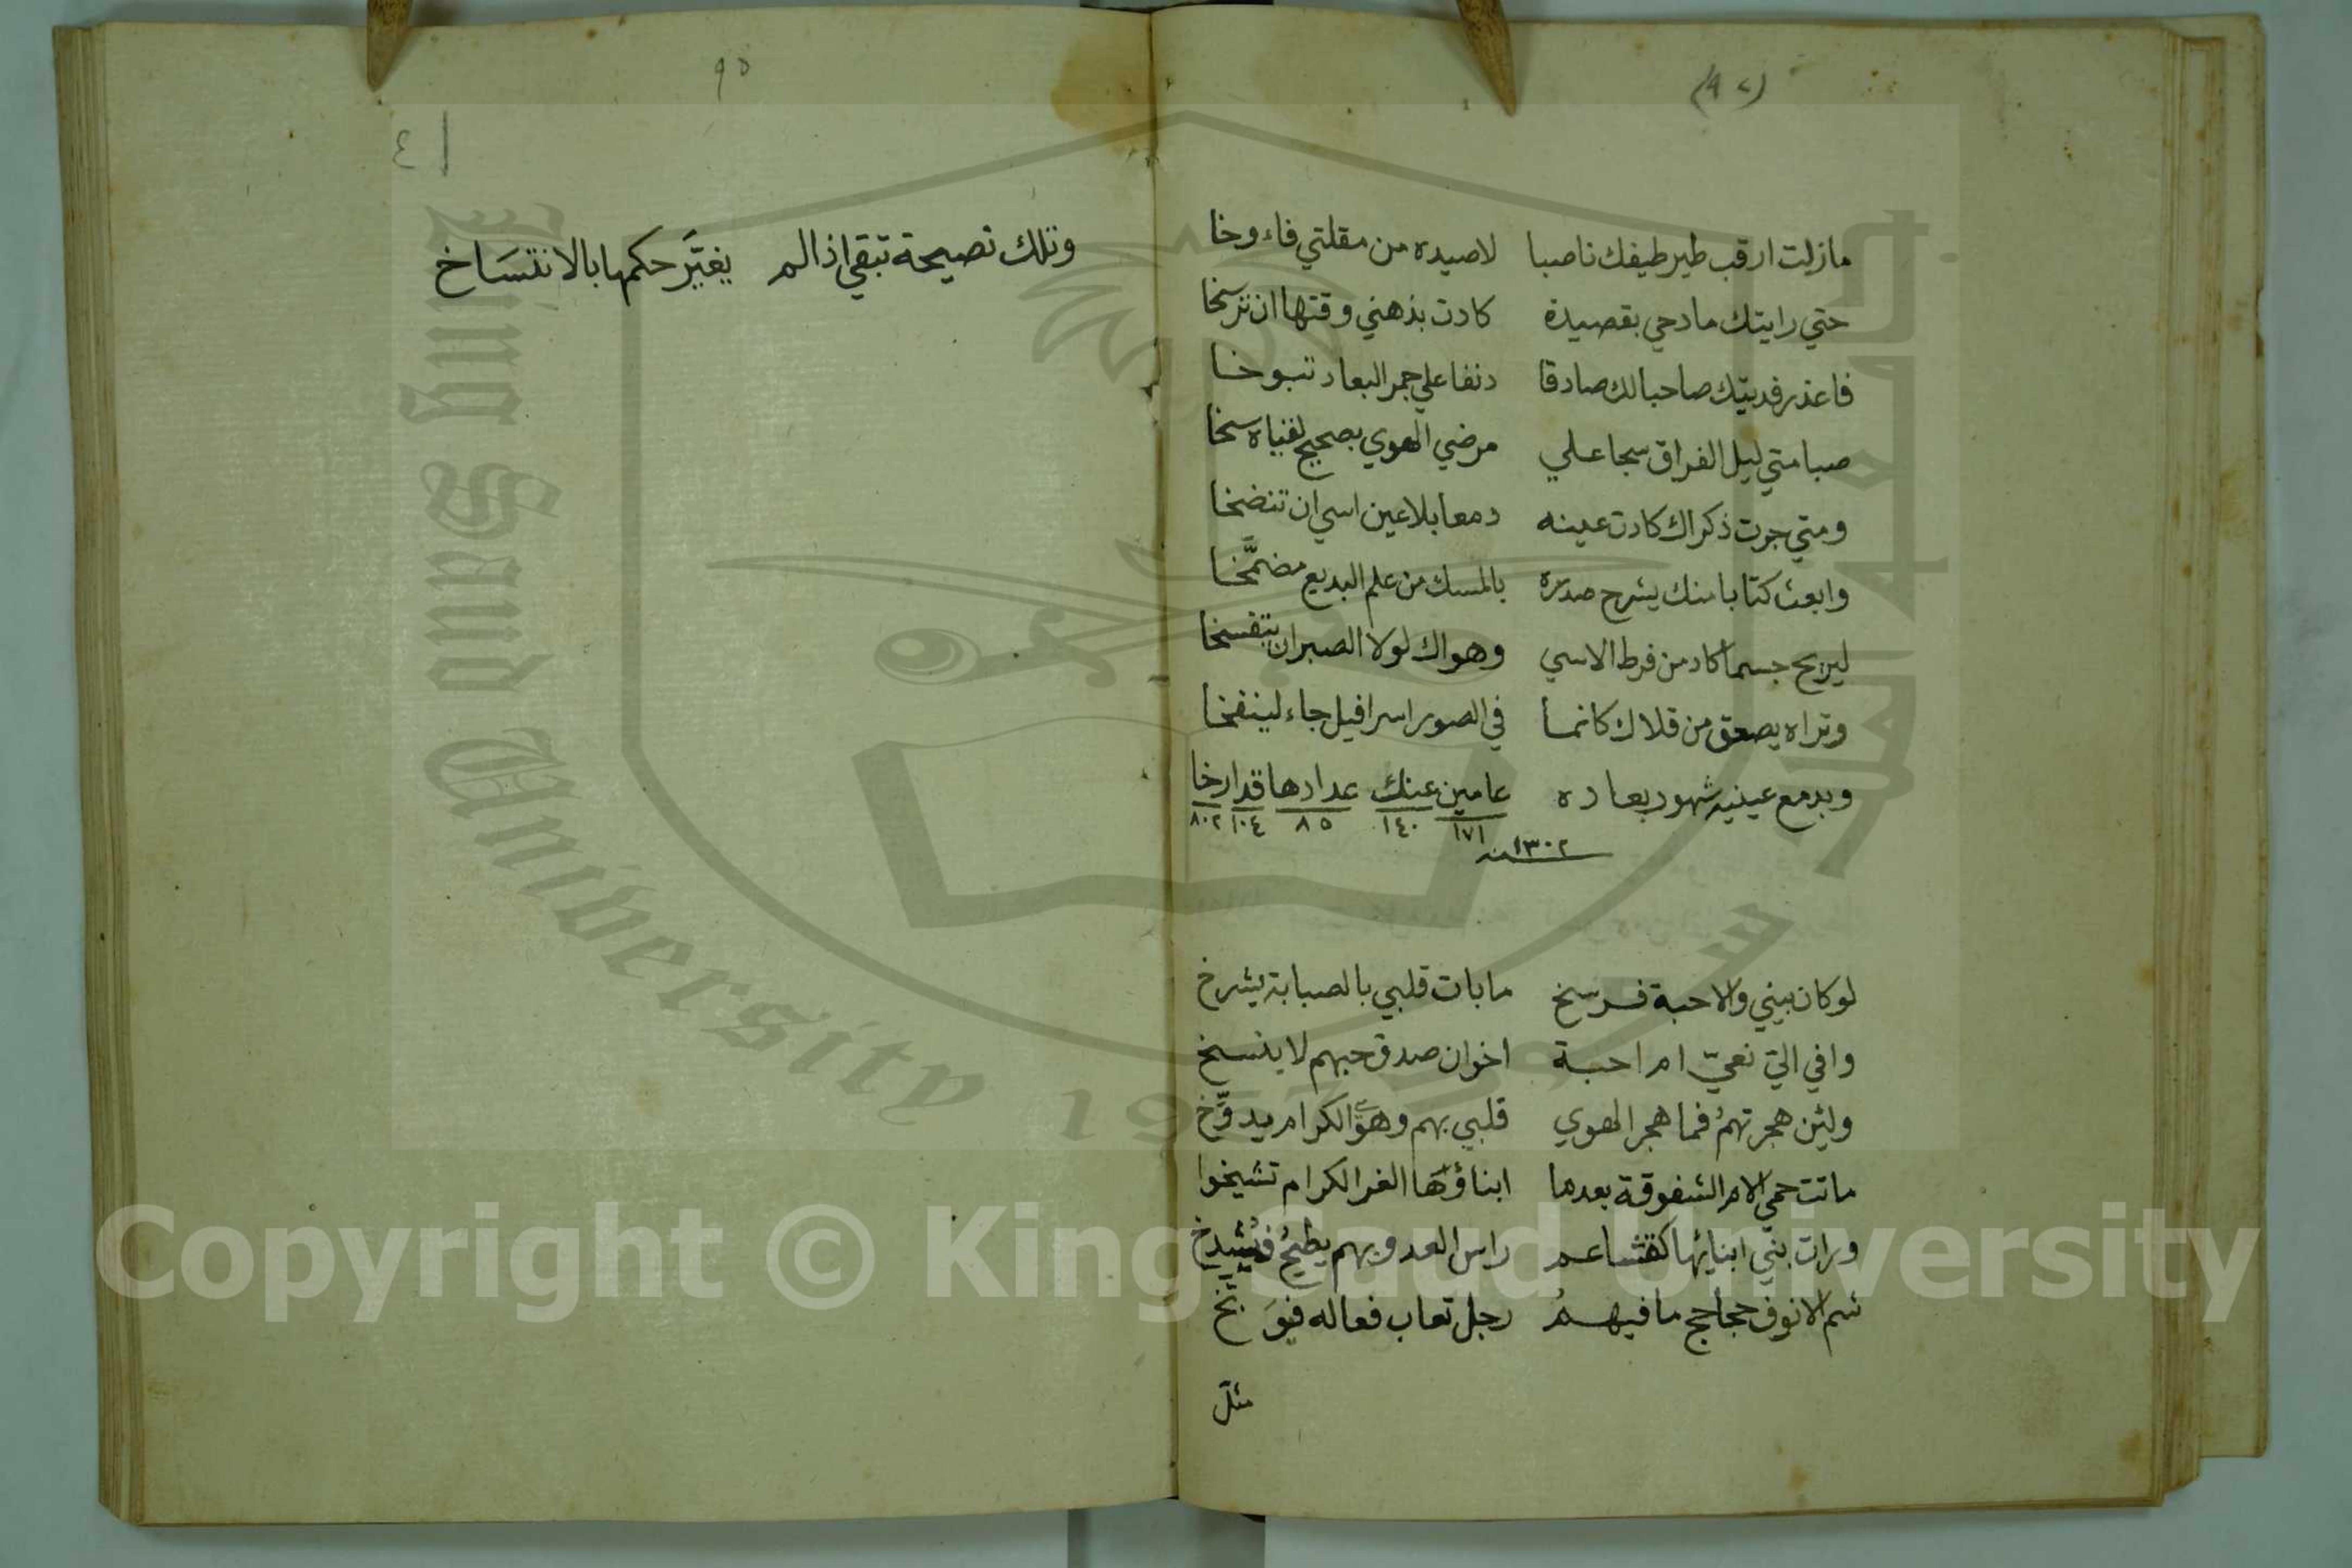 (٩٢)
مازلت ارقب طير طيفك ناصبا لاصيده من مقلتي فاء وخا
حتي رايتك مادحي بقصيدة كادت بذهني وقتها ان ترسخا
فاعذر فديتك صاحبا لك صادقا دنفا علي جمر البعاد تبوخا
صبا متي ليل الفراق سجا علي مرضي الهوي بصحيح لقياه سخا
ومتي جرت ذكراك كادت عينه دمعا بلا عين اسي ان تنضخا
وابعث كتابا منك يشرح صدره بالمسك من علم البديع مضمَّخا
ليريح جسما كاد من فرط الاسي وهواك لولا الصبر ان يتفسخا
وتراه يصعق من قلاك كانما في الصور اسرافيل جاء لينفخا
وبدمع عينيه شهود بعاده عامين عنك عدادها قد ارخا
١٧١ ١٤٠ ٨٥ ١٠٤ ٨٠٢
١٣٠٢ سنه
لو كان بيني والاحبة فرسخ ما بات قلبي بالصبابة يشرخ
وافي الي نعيّ ام احبة اخوان صدق حبهم لا ينسخ
ولئن هجرتهمُ فما هجر الهوي قلبي بهم وهوَ الكرام يدوَّخ
ماتت حمي الام الشفوقة بعدما ابناؤها الغر الكرام تشيخوا
ورات بني ابنائها كقشاعم راس العدو بهم يطيحُ فيُشدخ
شم الانوف حجاجح ما فيهمُ رجل تعاب فعاله فيوَبَّخ
مثل
٩٥
٤١
وتلك نصيحة تبقي اذا لم يغيَّر حكمها بالانتسَاخ
King Saud University 1957
جامعة الملك سعود
Copyright © King Saud University